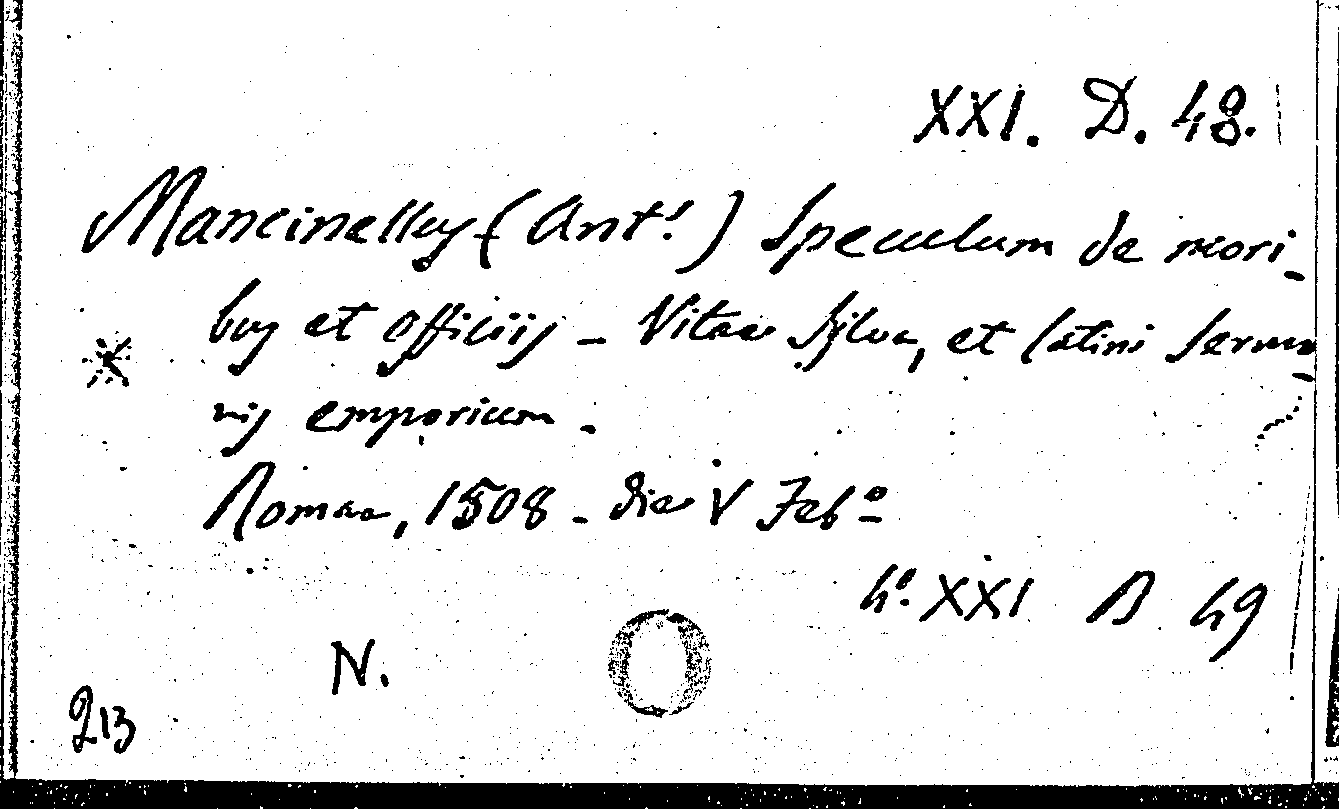 XXI. D. 48.
Mancinellus (Ant.s) Speculum de mori-
bus et officiis - Vitae Sylva, et latini sermo-
nis emporium -
Romae, 1508 - die V Feb.o
4.o XXI D 49
N.
213